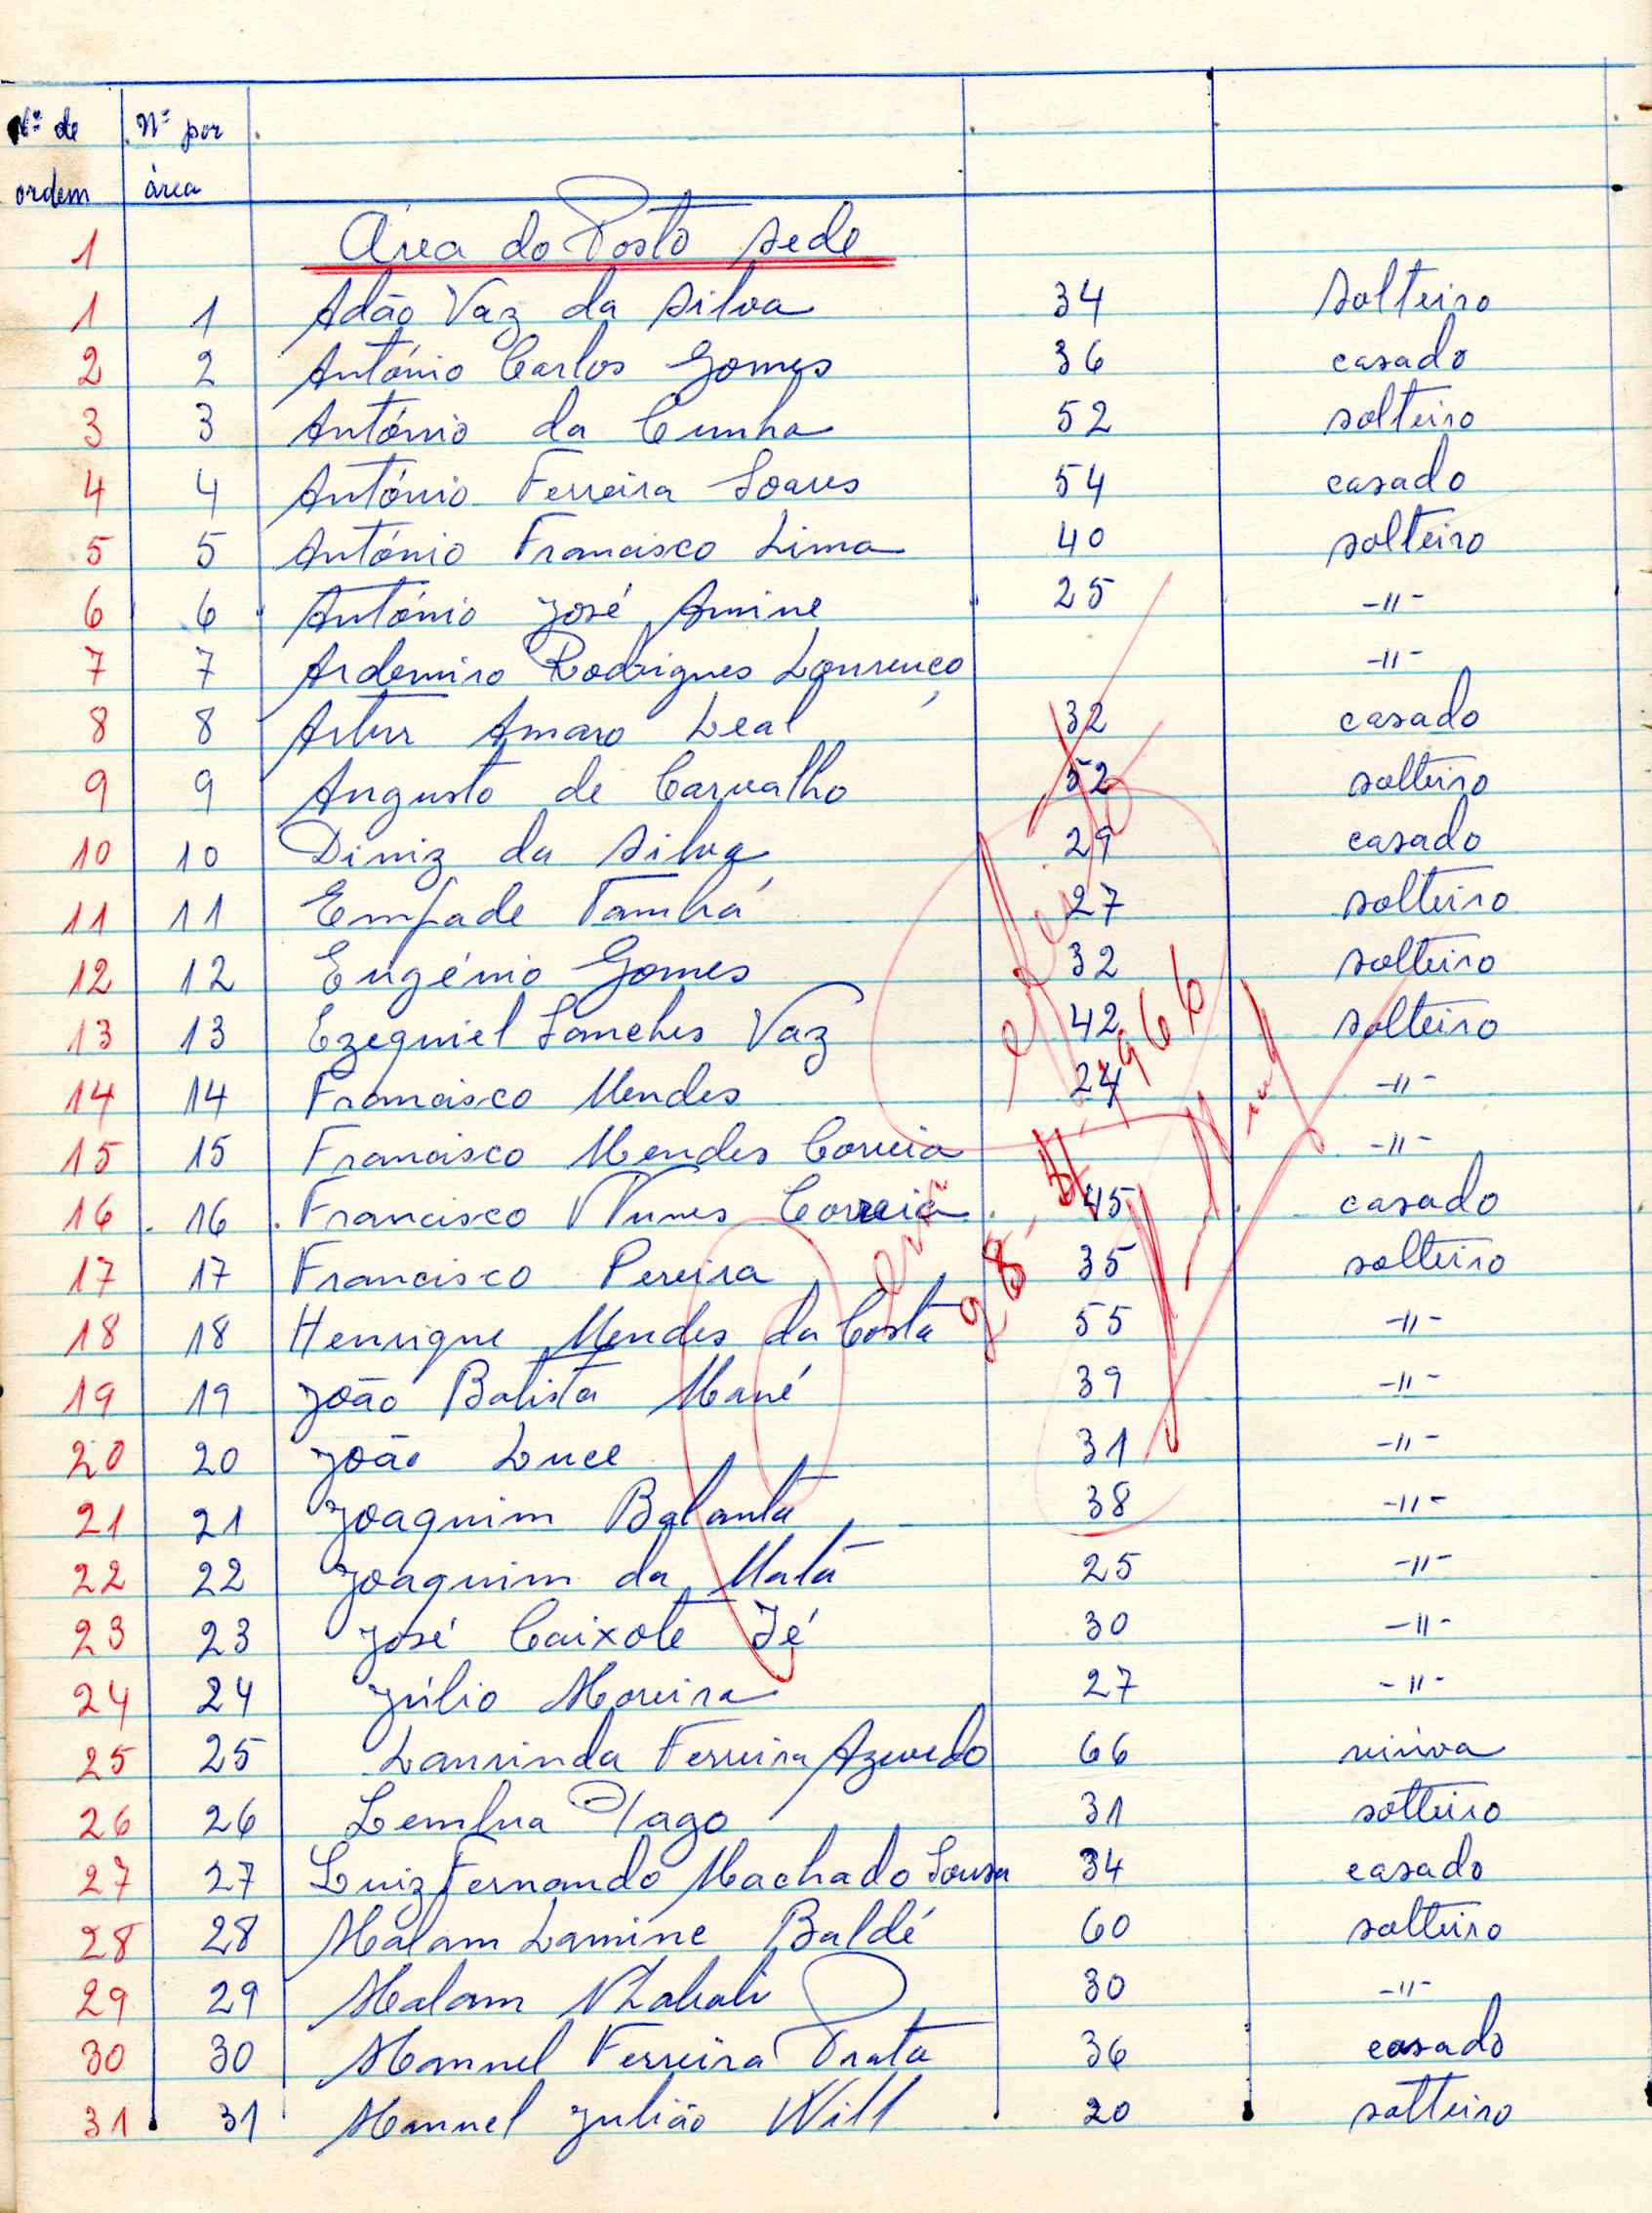 Nº de Nº por
ordem área
1 Área do Posto sede
1 1 Adão Vaz da Silva 34 solteiro
2 2 António Carlos Gomes 36 casado
3 3 António da Cunha 52 solteiro
4 4 António Ferreira Soares 54 casado
5 5 António Francisco Lima 40 solteiro
6 6 António José Amine 25 -"-
7 7 Ardemiro Rodrigues Lourenço -"-
8 8 Artur Amaro Leal 32 casado
9 9 Augusto de Carvalho 52 solteiro
10 10 Diniz da Silva 29 casado
11 11 Emfade Tambá 27 solteiro
12 12 Eugénio Gomes 32 solteiro
13 13 Ezequiel Sanches Vaz 42 solteiro
14 14 Francisco Mendes 24 -"-
15 15 Francisco Mendes Correia -"-
16 16 Francisco Nunes Correia 45 casado
17 17 Francisco Pereira 35 solteiro
18 18 Henrique Mendes da Costa 55 -"-
19 19 João Batista Mané 39 -"-
20 20 João Luce 31 -"-
21 21 Joaquim Balanta 38 -"-
22 22 Joaquim da Mata 25 -"-
23 23 José Caixote Jé 30 -"-
24 24 Júlio Moreira 27 -"-
25 25 Laurinda Ferreira Azevedo 66 viúva
26 26 Iago 31 solteiro
27 27 Luiz Fernando Machado Sousa 34 casado
28 28 Malam Lamine Baldé 60 solteiro
29 29 Malam 30 -"-
30 30 Manuel Ferreira Prata 36 casado
31 31 Manuel Julião Will 20 solteiro